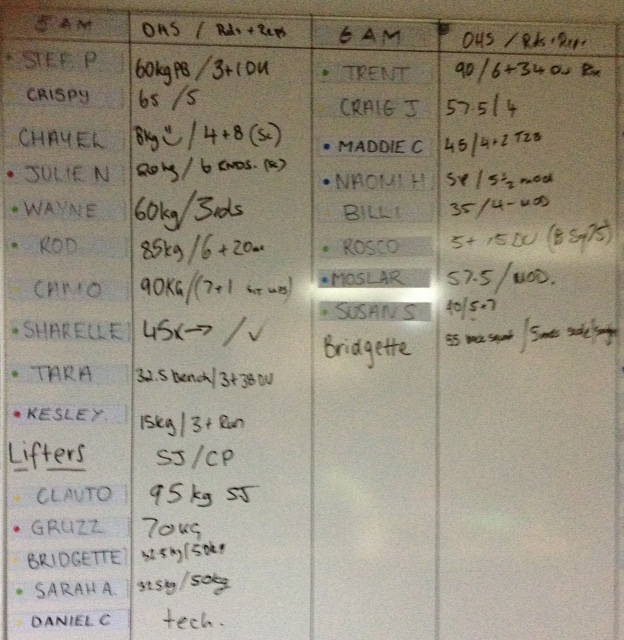 5 AM OHS / Rds + Reps
STEF P 60kg PB / 3+1 DU
CRISPY 65 / 5
CHAYEL 8kg / 4+8 (Sc)
JULIE N 20kg / 6 RNDS. (Sc)
WAYNE 60kg / 3 rds
ROD 85kg / 6 + 20
CAMO 90KG / (7+1
SHARELLE 45K → / ✓
TARA 32.5 bench / 3+38 DU
KESLEY. 15kg / 3 + Run
Lifters SJ / CP
CLAUTO 95 kg SJ
GRUZZ 70KG
BRIDGETTE 32.5kg / 50kg
SARAH A. 32.5kg / 50kg
DANIEL C tech.
6 AM OHS / Rds + Reps
TRENT 90 / 6 + 34 DU Rx
CRAIG J 57.5 / 4
MADDIE C 45 / 4+2 T2B
NAOMI H / 5½ mod
BILLI 35 / 4 - MOD
ROSCO 5 + 15 DU (B Sq 75)
MOSLAR 57.5 / MOD.
SUSAN S 40 / 5+7
Bridgette 55 back squat /